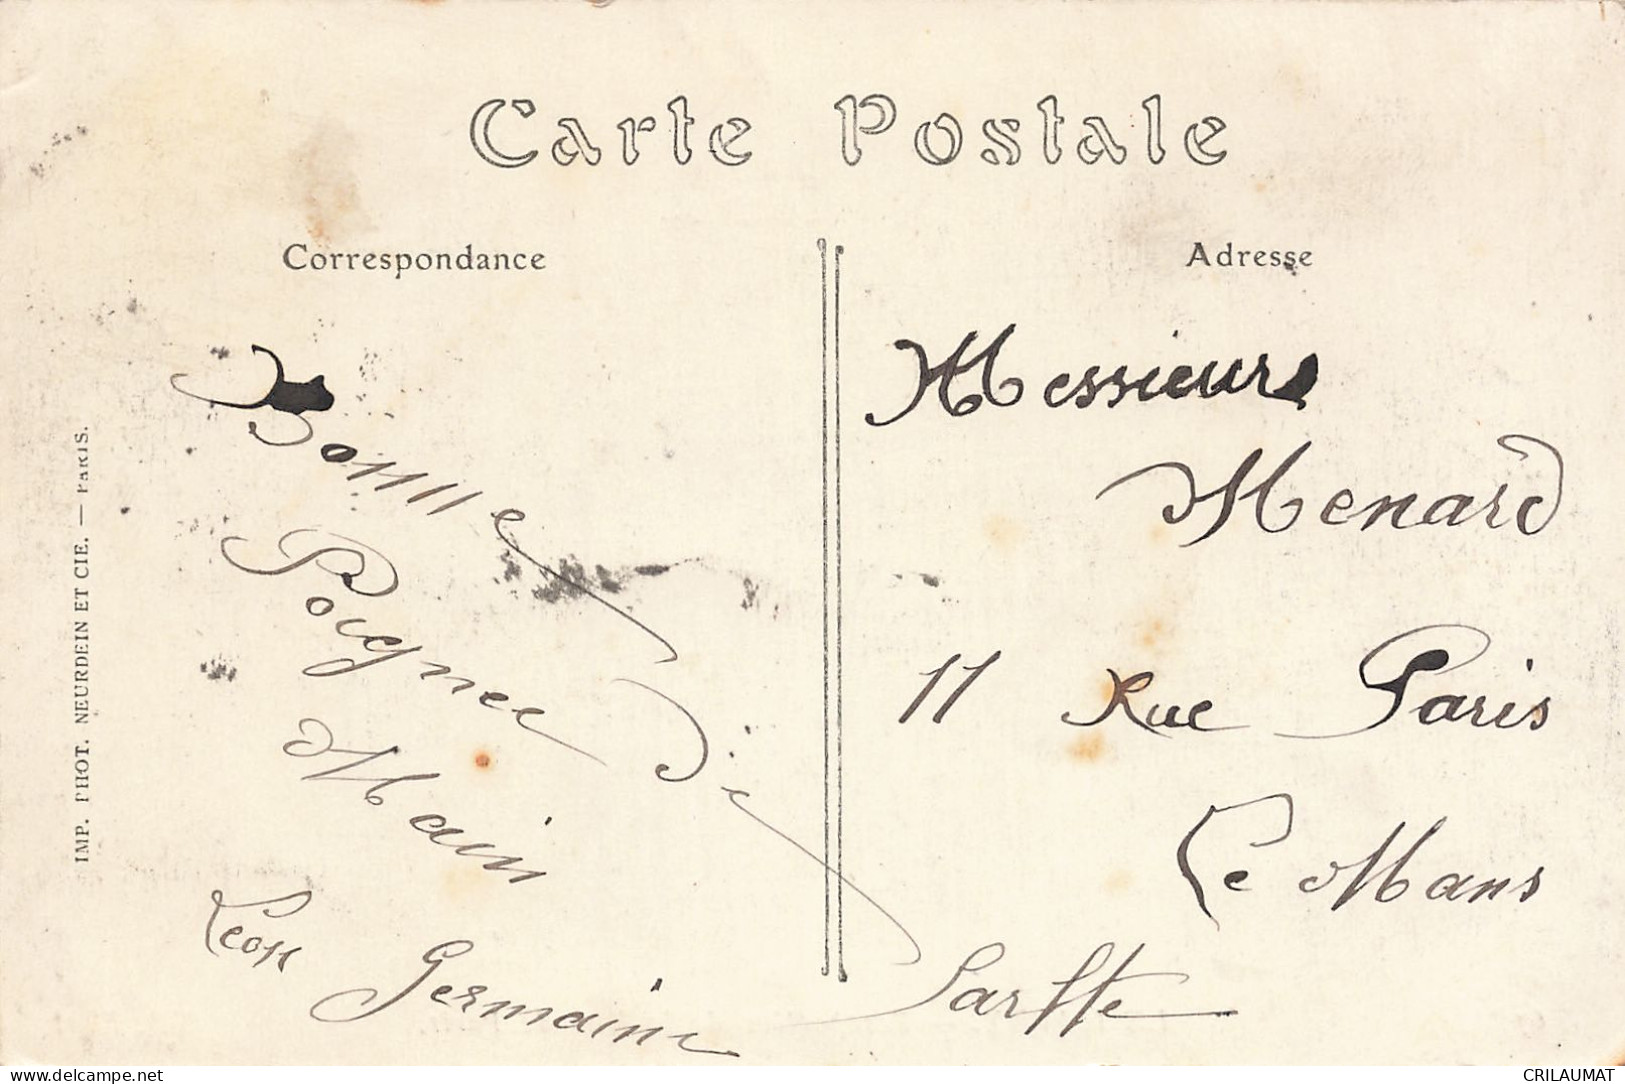 Carte Postale
Correspondance
Bonne
Poignee de
Main
Leon Germaine
Adresse
Messieurs
Menard
11 Rue Paris
Le Mans
Sarthe
IMP. PHOT. NEURDEIN ET CIE. — PARIS.
www.delcampe.net
CRILAUMAT